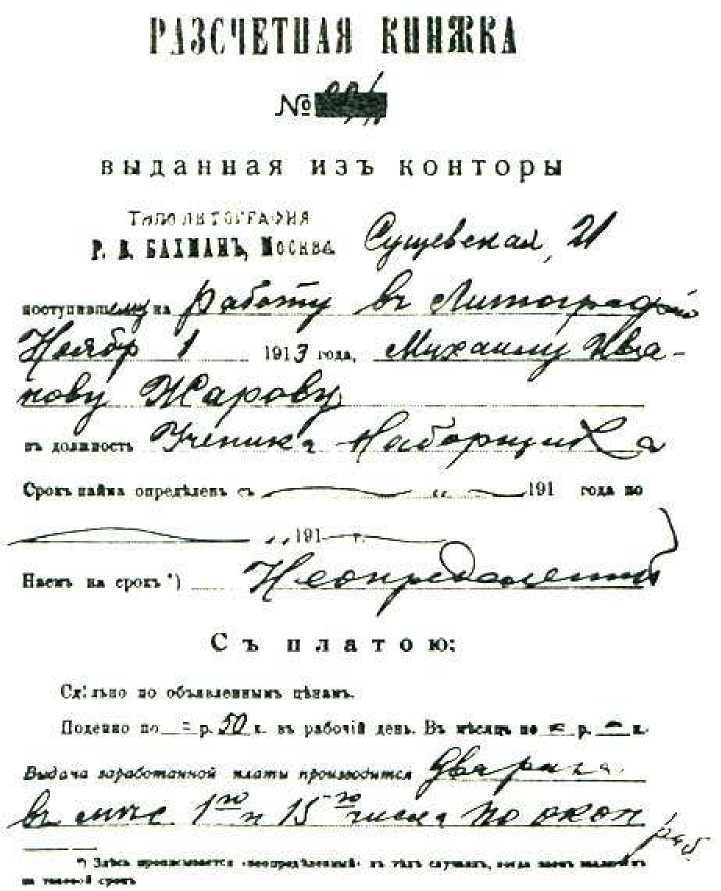 РАЗСЧЕТНАЯ КНИЖКА
№
выданная изъ конторы
ТИПО ЛИТОГРАФИЯ
Р. В. БАХМАНЪ, МОСКВА. Сущевская, 21
поступившему на работу въ Литографію
Ноябр 1 1913 года, Михаилу Ива-
нову Жарову
въ должность Ученика Наборщика
Срокъ найма опредѣленъ съ „ 191 года по
„ 191 г.
Наемъ на срокъ *) Неопредѣленный
Съ платою:
Сдѣльно по объявленнымъ цѣнамъ.
Поденно по = р. 50 к. въ рабочій день. Въ мѣсяцъ по = р. – к.
Выдача заработанной платы производится Два раза
въ мѣс 1го и 15го числа по окон
раб
*) Здѣсь прописывается «неопредѣленный» въ тѣхъ случаяхъ, когда наемъ
на таковой срокъ